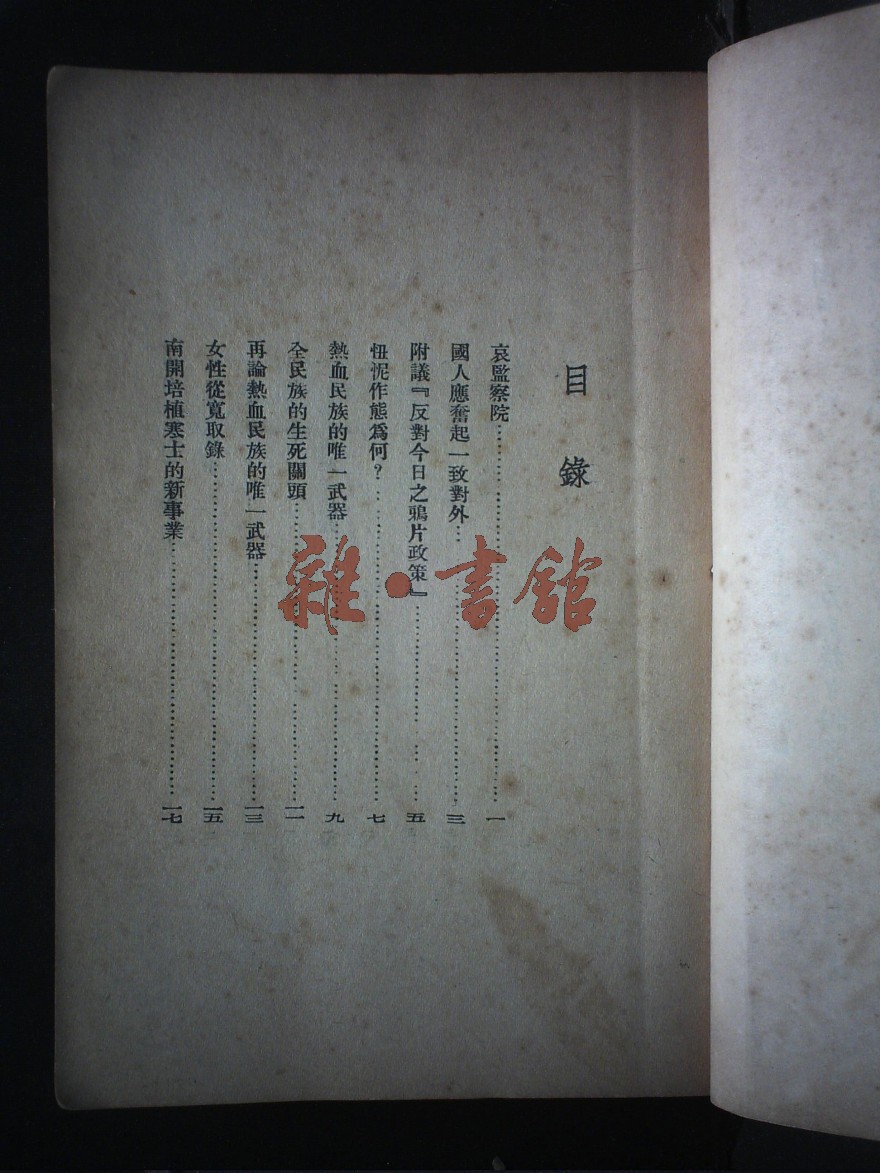 目錄
哀監察院……一
國人應奮起一致對外……三
附議『反對今日之鴉片政策』……五
忸怩作態爲何？……七
熱血民族的唯一武器……九
全民族的生死關頭……一一
再論熱血民族的唯一武器……一三
女性從寬取錄……一五
南開培植寒士的新事業……一七
雜·書館